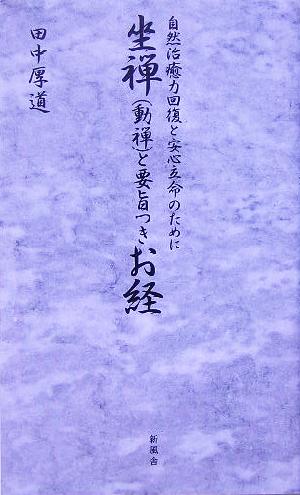 自然治癒力回復と安心立命のために
坐禅(動禅)と要旨つきお経
田中厚道
新風舎